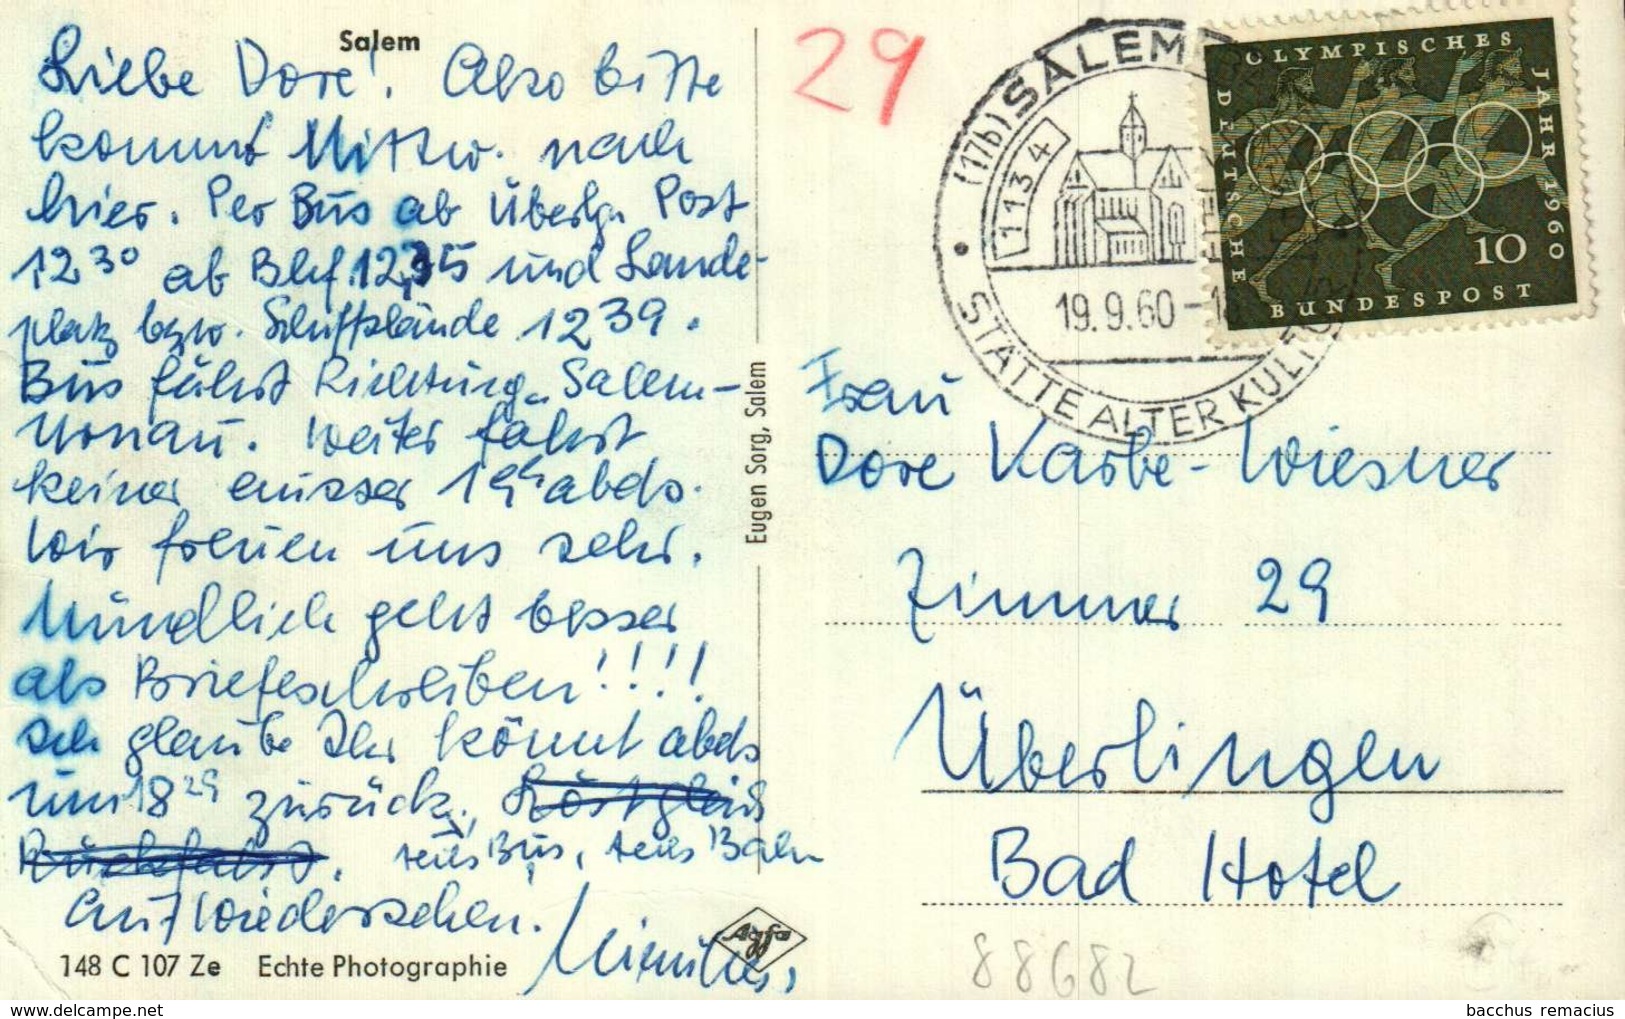 Salem
Liebe Dore! Also bitte
kommt Mittw. nach
hier. Per Bus ab Überlg. Post
12 30 ab Bhf. 12,35 und Lande-
platz bzw. Schiffslände 12 39.
Bus fährt Richtung Salem-
Monau. Weiter fährt
keiner ausser 19 abds.
Wir freuen uns sehr.
Mündlich geht besser
als Briefeschreiben!!!!
Ich glaube Ihr könnt abds
um 18 29 zurück,
teils Bus, teils Bahn
Auf Wiedersehen.
148 C 107 Ze Echte Photographie
Eugen Sorg, Salem
Agfa
29
(17b) SALEM
1134
19.9.60
STÄTTE ALTER KULTUR
OLYMPISCHES
JAHR 1960
DEUTSCHE
BUNDESPOST
10
Frau
Dore Karbe-Wiesner
Zimmer 29
Überlingen
Bad Hotel
88682
bacchus remacius